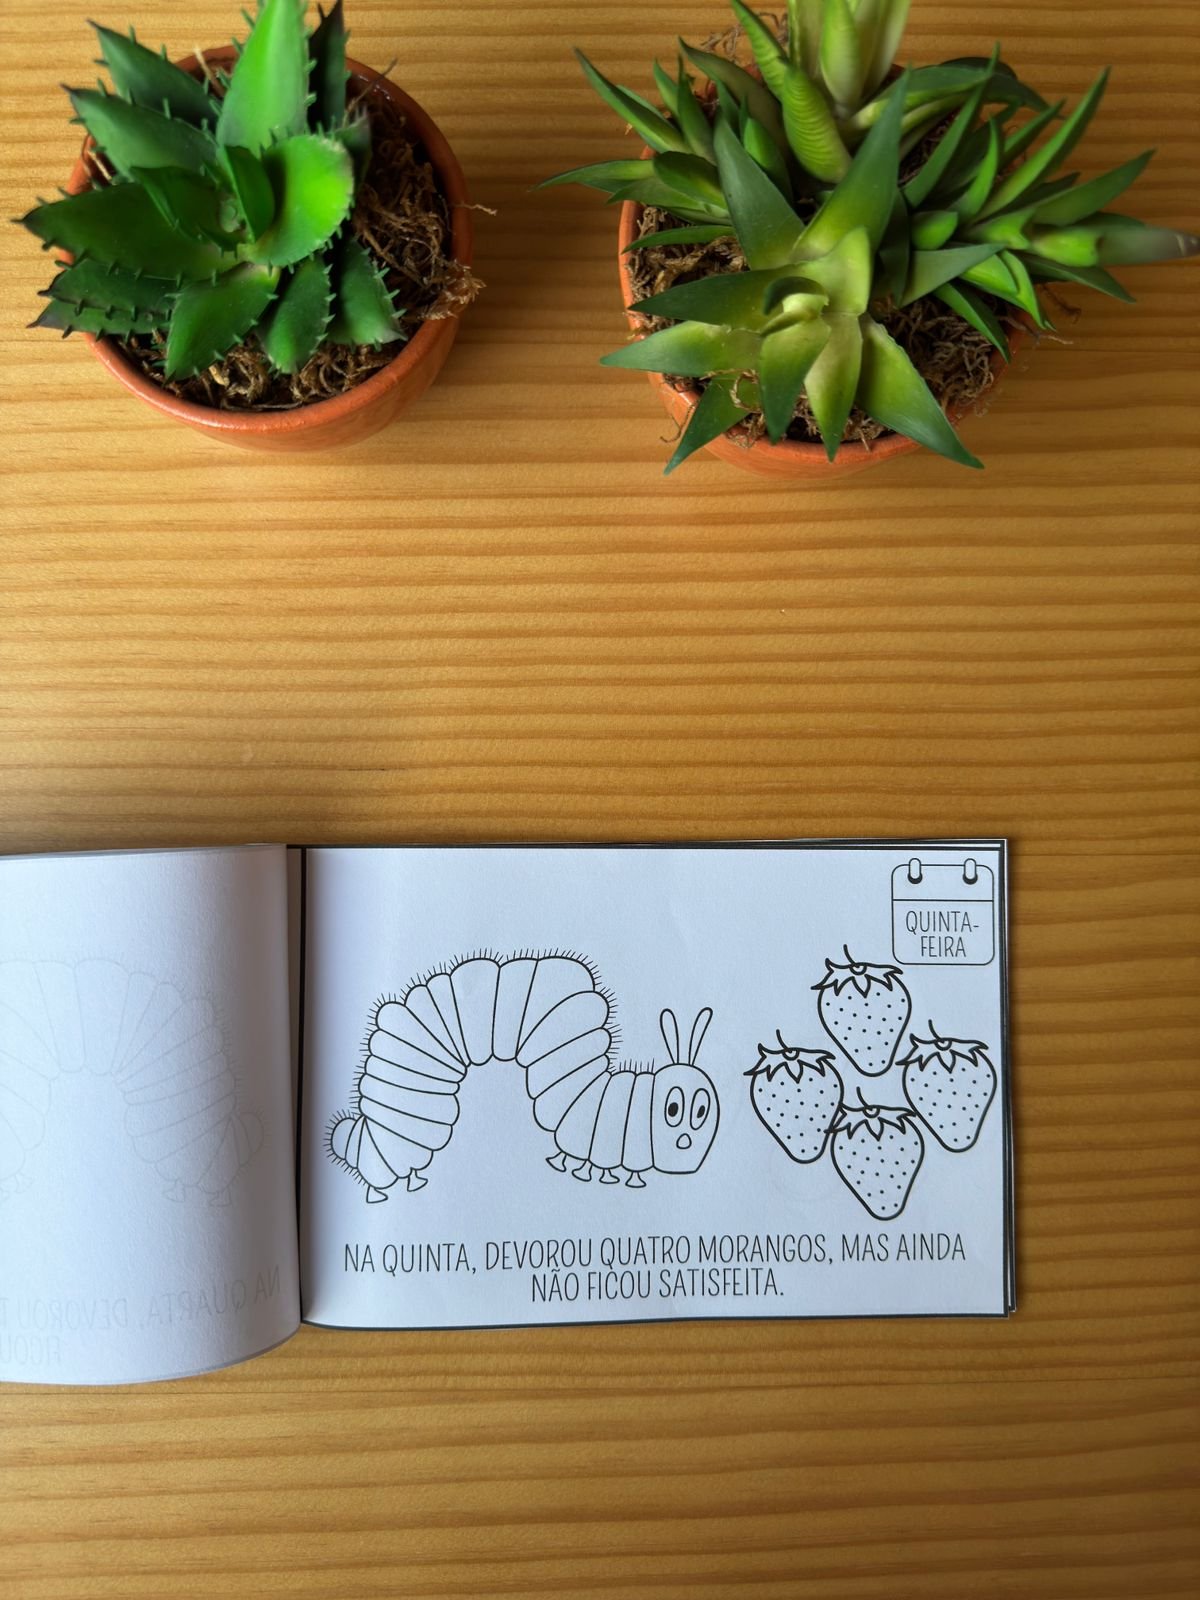 QUINTA-
FEIRA
NA QUINTA, DEVOROU QUATRO MORANGOS, MAS AINDA
NÃO FICOU SATISFEITA.
NA QUARTA, DEVOROU
FICOU